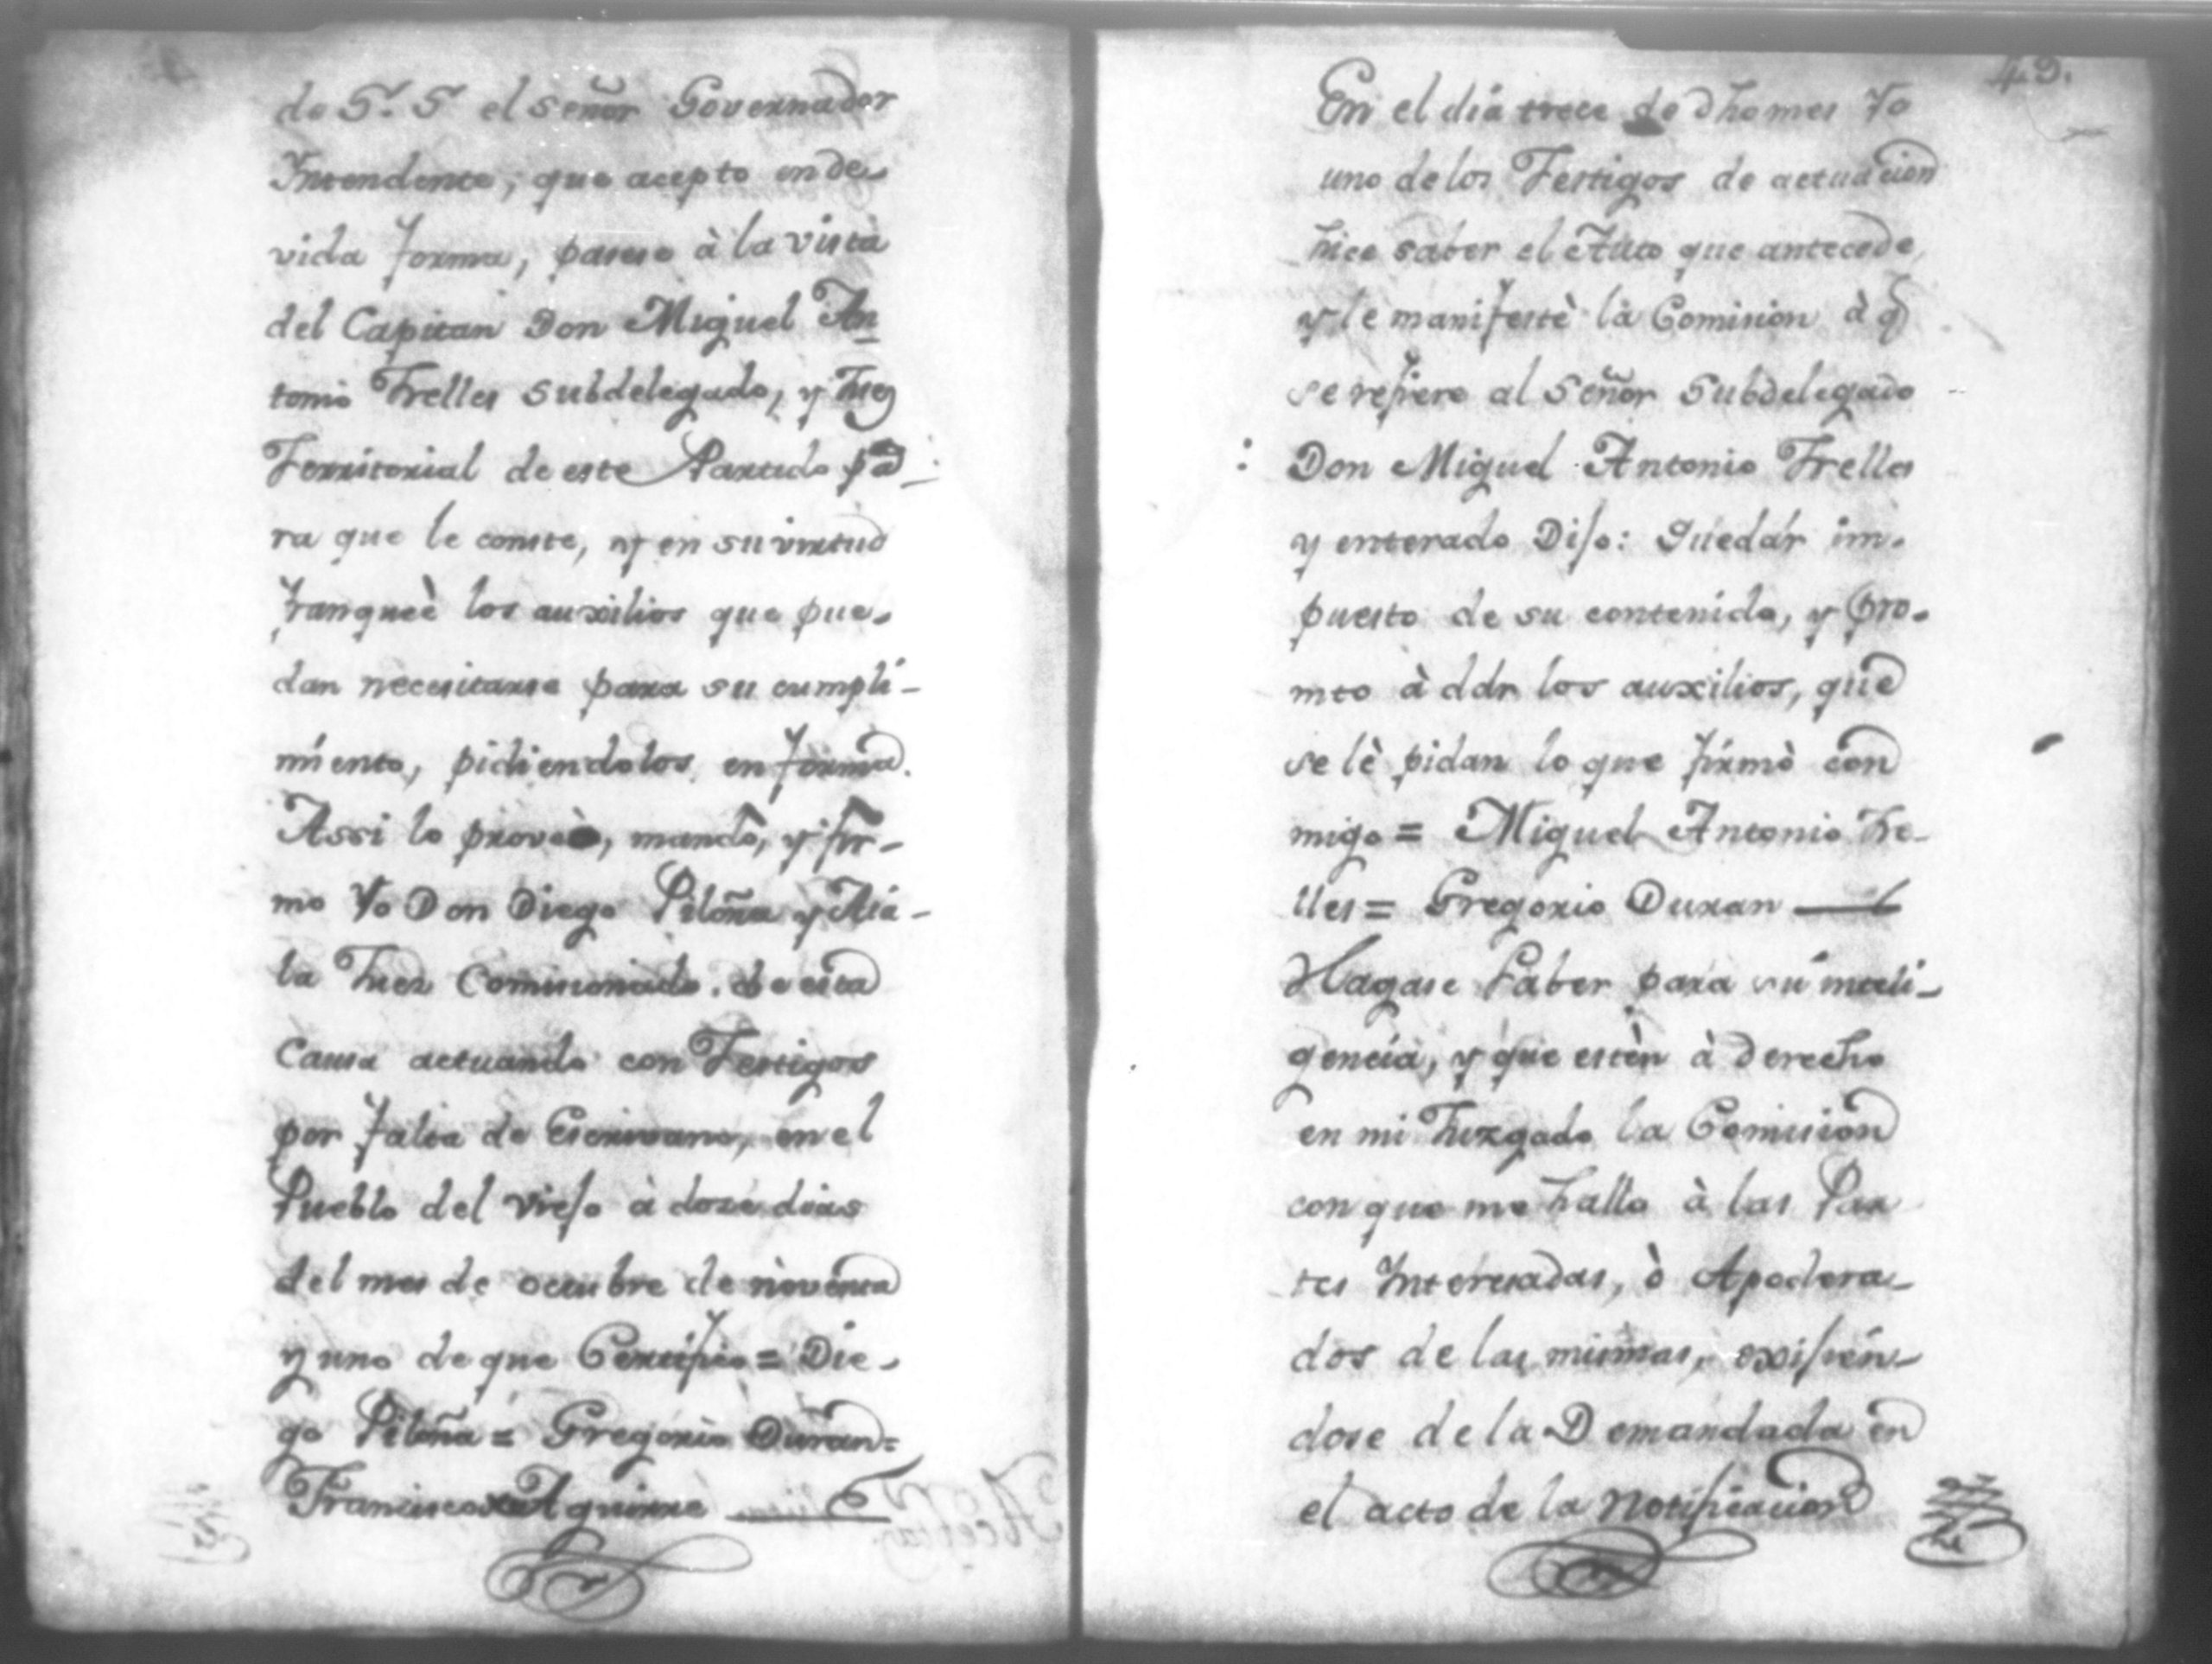 do S.ª S.ª el señor Governador
Yntendente, que acepto en de-
vida forma, pasese à la vista
del Capitan Don Miguel An
tonio Trelles Subdelegado, y Juez
Territorial de este Partido pa-
ra que le conste, y en su virtud
franqueè los auxilios que pue-
dan necesitarse para su cumpli-
miento, pidiendolos en forma.
Assi lo proveo, mando, y fir-
mo Yo Don Diego Piloña y Aia-
la Juez Comisionado de esta
Causa actuando con Testigos
por falta de Escrivano, en el
Pueblo del Viejo à doze dias
del mes de octubre de noventa
y uno de que Certifico = Die-
go Piloña = Gregorio Duran =
Francisco Alguirre
49.
En el dia trece de dho mes Yo
uno de los Testigos de actuacion
hice saber el Auto que antecede,
y le manifestè la Comision à q
se refiere al Señor Subdelegado
Don Miguel Antonio Trelles
y enterado Dijo: Quedar im-
puesto de su contenido, y pro-
mto à ddr los auxilios, que
se lè pidan lo que firmò con
migo = Miguel Antonio Tre-
lles = Gregorio Duran
Hagase Saber para su inteli-
gencia, y que estèn à derecho
en mi Juzgado la Comision
con que me hallo à las Par
tes Interesadas, ò Apodera-
dos de las mismas, exijien-
dose de la Demandada en
el acto de la Notificacion